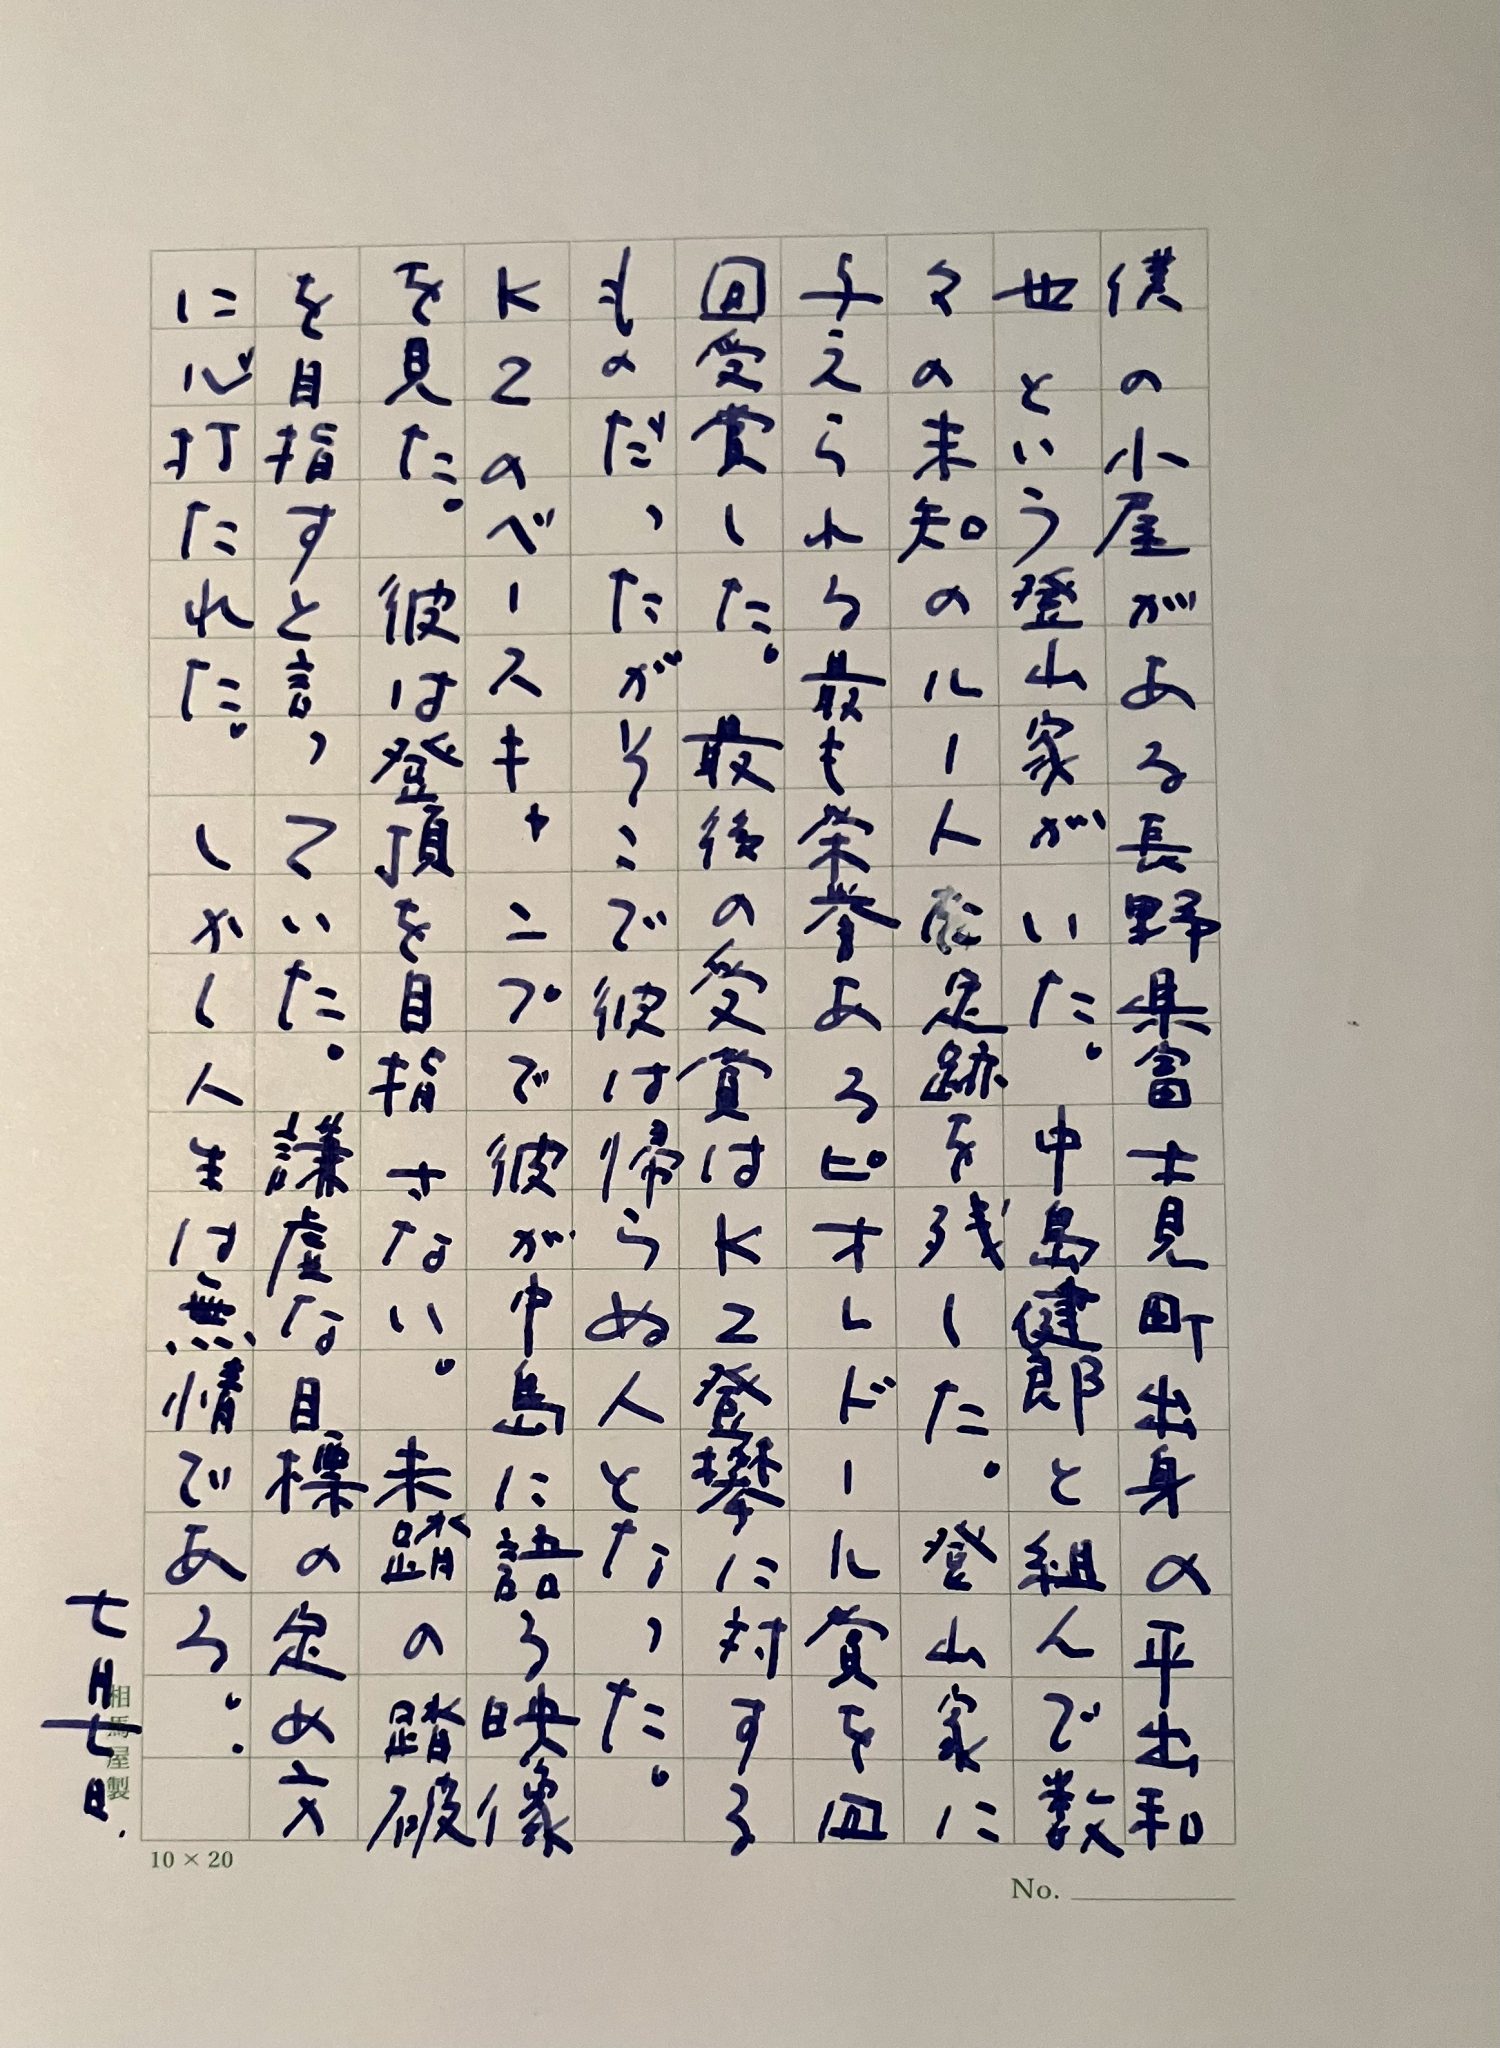 僕の小屋がある長野県富士見町出身の平出和
也という登山家がいた。中島健郎と組んで数
々の未知のルートに足跡を残した。登山家に
与えられる最も栄誉あるピオレドール賞を四
回受賞した。最後の受賞はK2登攀に対する
ものだったがそこで彼は帰らぬ人となった。
K2のベースキャンプで彼が中島に語る映像
を見た。彼は登頂を目指さない。未踏の踏破
を目指すと言っていた。謙虚な目標の定め方
に心打たれた。しかし人生は無情である。
七月七日.
相馬屋製
10×20
No.